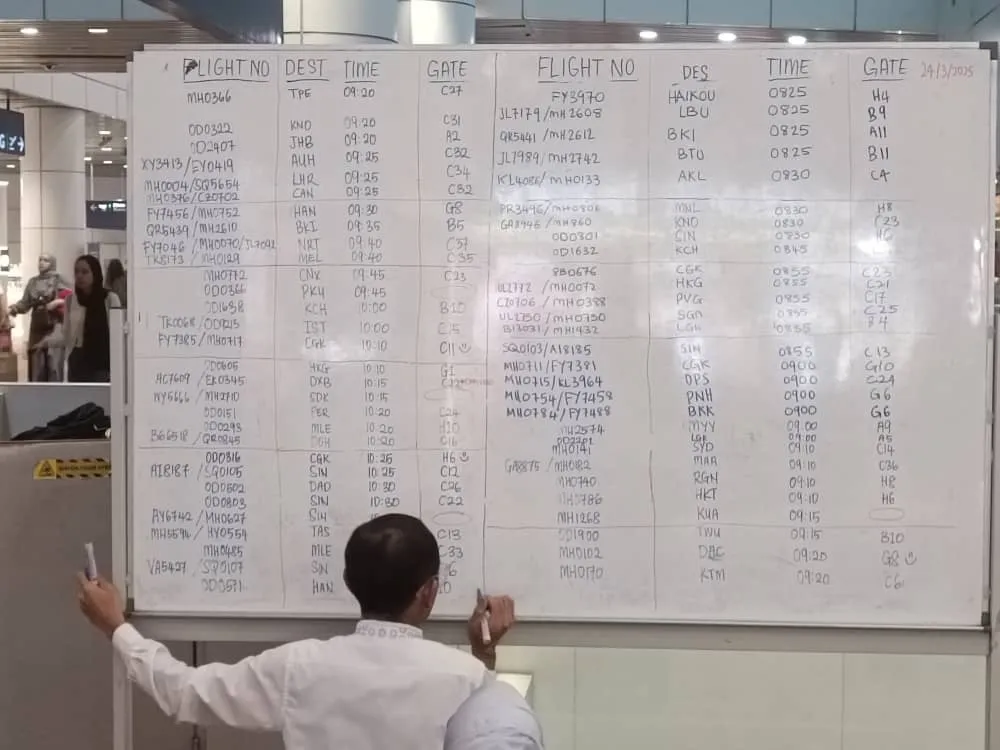 FLIGHT NO DEST TIME GATE
MH0366 TPE 09:20 C27
OD0322 KNO 09:20 C31
OD2407 JHB 09:20 A2
XY3413/EY0419 AUH 09:25 C32
MH0004/SQ5654 LHR 09:25 C34
MH0376/CZ0702 CAN 09:25 C32
FY7456/MH0752 HAN 09:30 G8
QR5439/MH2610 BKI 09:35 B5
FY7046/MH0070/JL7092 NRT 09:40 C37
TK8173/MH0129 MEL 09:40 C35
MH0772 CNX 09:45 C23
OD0366 PKU 09:45
OD1638 KCH 10:00 B10
TK0068/OD9213 IST 10:00 C15
FY7385/MH0717 CGK 10:10 C11
OD0605 HKG 10:10 G1
HC7609/EK0345 DXB 10:15
NY5666/MH2710 SDK 10:15
OD0151 PER 10:20 C24
OD0293 MLE 10:20 H10
B66518/QR0845 DOH 10:20 C16
OD0316 CGK 10:25 H6
AI8187/SQ0105 SIN 10:25 C12
OD0502 DAD 10:30 C26
OD0803 SIN 10:30 C22
AY6742/MH0627 SIN
MH5596/HY0554 TAS C13
MH0485 MLE C33
VA5427/SQ0107 SIN
OD0571 HAN
FLIGHT NO DES TIME GATE 24/3/2025
FY3970 HAIKOU 0825 H4
JL7179/MH2608 LBU 0825 B9
QR5441/MH2612 BKI 0825 A11
JL7989/MH2742 BTU 0825 B11
KL4086/MH0133 AKL 0830
PR3496/MH0806 MNL 0830 H8
GA8946/MH860 KNO 0830 C23
OD0301 CIN 0830
OD1632 KCH 0845
8B0676 CGK 0855 C23
UL2772/MH0072 HKG 0855 C21
CZ0706/MH0388 PVG 0855 C17
UL2750/MH0750 SGN 0855 C25
BI7031/MH1432 LGK 0855 B4
SQ0103/AI8185 SIN 0855 C13
MH0711/FY7381 CGK 0900 G10
MH0715/KL3964 DPS 0900 C24
MH0754/FY7458 PNH 0900 G6
MH0784/FY7488 BKK 0900 G6
MH2574 MYY 09:00 A9
OD2201 LGK 09:00 A5
MH0141 SYD 09:10 C14
GA8875/MH0182 MAA 09:10 C36
MH0740 RGN 09:10 H8
MH0786 HKT 09:10 H6
MH1268 KUA 09:15
OD1900 TWU 09:15 B10
MH0102 DAC 09:20 G8
MH0170 KTM 09:20 C6